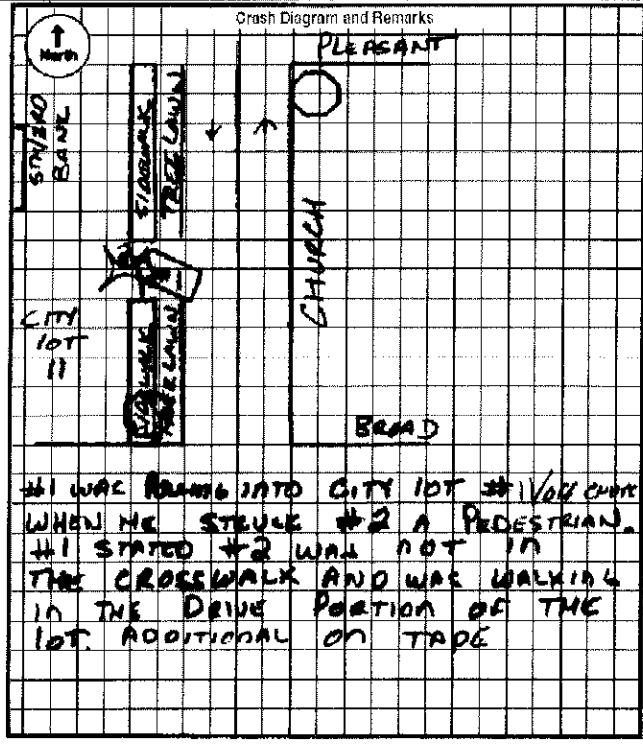 Crash Diagram and Remarks
North
PLEASANT
5TH/3RD
BANK
SIDEWALK
TREE LAWN
CHURCH
CITY
LOT
11
SIDEWALK
TREE LAWN
BROAD
#1 WAS PULLING INTO CITY LOT #11/OFF CHURCH
WHEN HE STRUCK #2 A PEDESTRIAN.
#1 STATED #2 WAS NOT IN
THE CROSSWALK AND WAS WALKING
IN THE DRIVE PORTION OF THE
LOT. ADDITIONAL ON TAPE